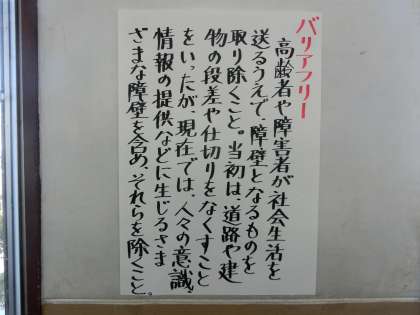 バリアフリー
高齢者や障害者が社会生活を
送るうえで、障壁となるものを
取り除くこと。当初は、道路や建
物の段差や仕切りをなくすこと
をいったが、現在では、人々の意識、
情報の提供などに生じるさま
ざまな障壁を含め、それらを除くこと。